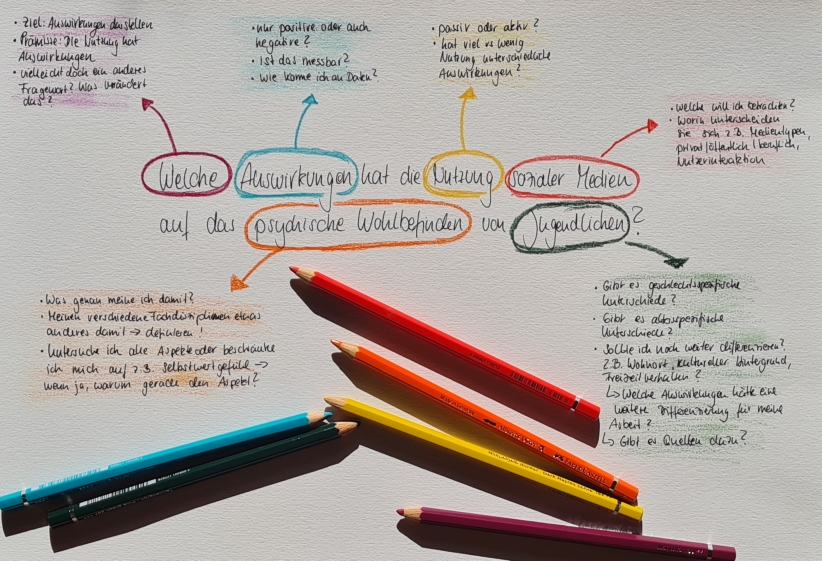 • Ziel: Auswirkungen darstellen
• Prämisse: Die Nutzung hat
Auswirkungen
• vielleicht doch ein anderes
Fragewort? Was verändert
das?
• nur positive oder auch
negative?
• Ist das messbar?
• Wie komme ich an Daten?
• passiv oder aktiv?
• hat viel vs wenig
Nutzung unterschiedliche
Auswirkungen?
• welche will ich betrachten?
• Worin unterscheiden
sie sich z.B. Medientypen,
privat/öffentlich/beruflich,
Nutzerinteraktion
Welche Auswirkungen hat die Nutzung sozialer Medien
auf das psychische Wohlbefinden von Jugendlichen?
• Was genau meine ich damit?
• Meinen verschiedene Fachdisziplinen etwas
anderes damit → definieren!
• Untersuche ich alle Aspekte oder beschränke
ich mich auf z.B. Selbstwertgefühl →
wenn ja, warum gerade den Aspekt?
• Gibt es geschlechtsspezifische
Unterschiede?
• Gibt es altersspezifische
Unterschiede?
• Sollte ich noch weiter differenzieren?
z.B. Wohnort, kultureller Hintergrund,
Freizeitverhalten?
↳ Welche Auswirkungen hätte eine
weitere Differenzierung für meine
Arbeit?
↳ Gibt es Quellen dazu?